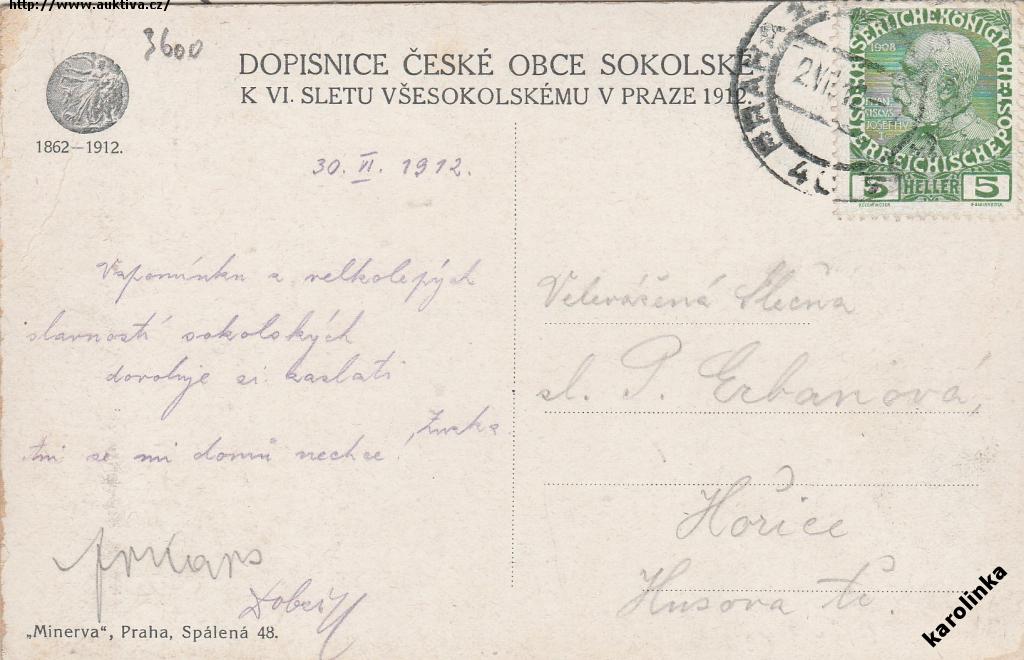 http://www.auktiva.cz/
3600
DOPISNICE ČESKÉ OBCE SOKOLSKÉ
K VI. SLETU VŠESOKOLSKÉMU V PRAZE 1912.
1862–1912.
30. VI. 1912.
Vzpomínku z velkolepých
slavností sokolských
dovoluje si zaslati
Ani se mi domů nechce!
Velevážená Slečna
sl. P. Erbanová,
Hořice
Husova tř.
PRAHA
KAISERLICHE KÖNIGLICHE ÖSTERREICHISCHE POST
1908
5 HELLER 5
„Minerva“, Praha, Spálená 48.
karolinka